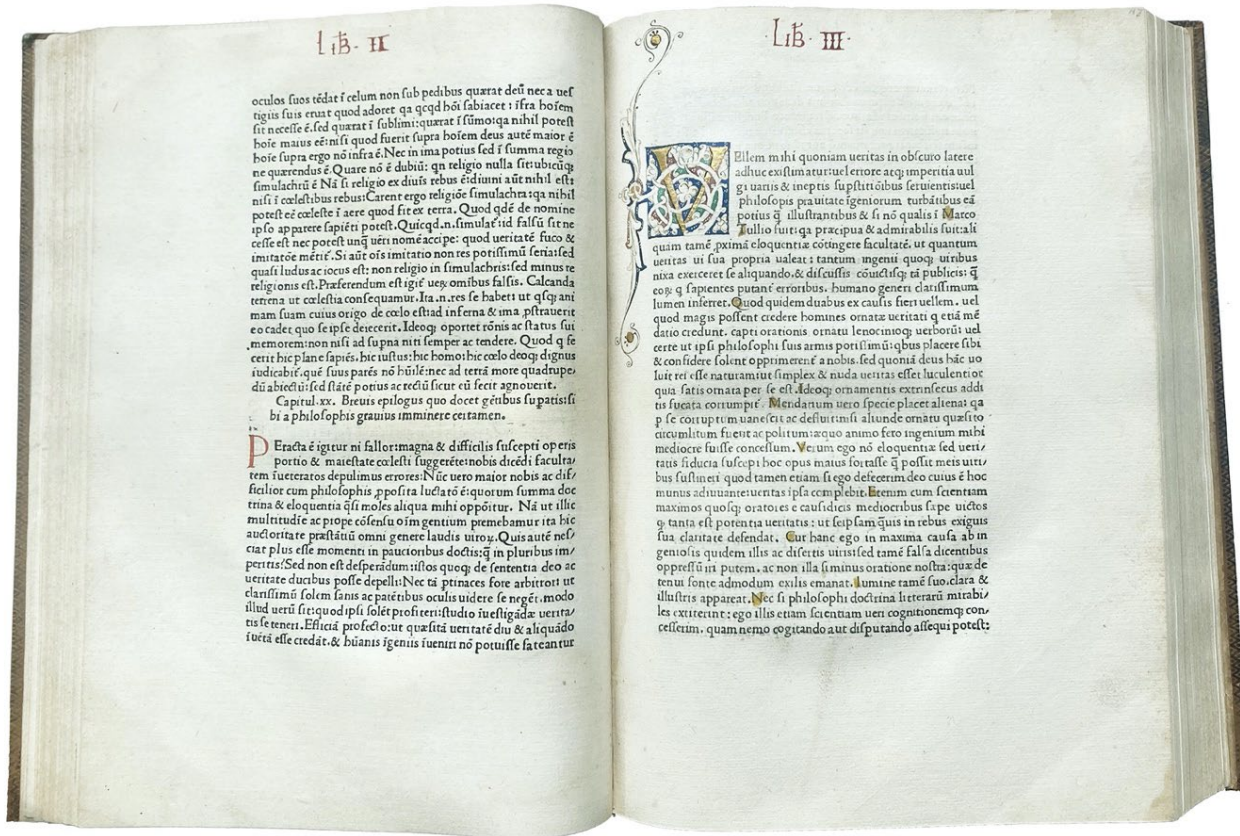 Lib. II
oculos suos tēdat ī celum non sub pedibus quærat deū nec a ues
tigiis suis eruat quod adoret qa qcqd hōi sabiacet: ifra hoiem
sit necesse ē. sed quærat ī sublimi: quærat ī sūmo: qa nihil potest
hoie maius eē: nisi quod fuerit supra hoiem deus autē maior ē
hoie supra ergo nō infra ē. Nec in ima potius sed ī summa regio
ne quærendus ē. Quare nō ē dubiū: qn religio nulla sit: ubicūq;
simulachrū ē Nā si religio ex diuīs rebus ē: diuini aūt nihil est:
nisi ī cœlestibus rebus: Carent ergo religiōe simulachra: qa nihil
potest eē cœleste ī aere quod fit ex terra. Quod qdē de nomine
ipso apparere sapiēti potest. Quicqd .n. simulat: id falsū sit ne
cesse est nec potest unq̄ ueri nomē accipe: quod ueritatē fuco &
imitatōe mētit. Si aūt oīs imitatio non res potissimū seria: sed
quasi ludus ac iocus est: non religio in simulachris: sed minus re
religionis est. Præferendum est igit ueꝝ omibus falsis. Calcanda
terrena ut cœlestia consequamur. Ita .n. res se habet: ut qsq; ani
mam suam cuius origo de cœlo est: ad inferna & ima ꝓstrauerit
eo cadet quo se ipse deiecerit. Ideoq; oportet rōnis ac status sui
memorem: non nisi ad supna niti semper ac tendere. Quod q fe
cerit hic plane sapiēs. hic iustus: hic homo: hic cœlo deoq; dignus
iudicabit. quē suus parēs nō hūilē: nec ad terrā more quadrupe,
dū abiectū: sed stātē potius ac rectū sicut eū fecit agnouerit.
Capitul. xx. Breuis epilogus quo docet gētibus supatis: si
bi a philosophis grauius imminere certamen.
Peracta ē igitur ni fallor: magna & difficilis suscepti operis
portio & maiestate cœlesti suggerēte: nobis dicēdi faculta,
tem īueteratos depulimus errores: Nūc uero maior nobis ac dif,
ficilior cum philosophis ꝓposita luctatō ē: quorum summa doc
trina & eloquentia q̄si moles aliqua mihi oppōitur. Nā ut illic
multitudīe ac prope cōsensu oīm gentium premebamur ita hic
auctoritate præstātiū omni genere laudis uiroꝝ. Quis autē nes,
ciat plus esse momenti in paucioribus doctis: q̄ in pluribus im,
peritis: Sed non est desperādum: istos quoq; de sententia deo ac
ueritate ducibus posse depelli: Nec tā ptinaces fore arbitror: ut
clarissimū solem sanis ac patētibus oculis uidere se negēt. modo
illud uerū sit: quod ipsi solēt profiteri: studio īuestigādæ uerita,
tis se teneri. Efficiā profecto: ut quæsitā ueritatē diu & aliquādo
īuētā esse credāt. & hūanis īgeniis īueniri nō potuisse fateantur
Lib. III.
Vellem mihi quoniam ueritas in obscuro latere
adhuc existimatur: uel errore atq; imperitia uul
gi uariis & ineptis supstitiōibus seruientis: uel
philosopis prauitate īgeniorum turbātibus eā
potius q̄ illustrantibus & si nō qualis ī Marco
Tullio fuit: qa præcipua & admirabilis fuit: ali
quam tamē ꝓximā eloquentiæ cōtingere facultatē. ut quantum
ueritas ui sua propria ualeat: tantum ingenii quoq; uiribus
nixa exerceret se aliquando. & discussis cōuictisq; tā publicis: q̄
eoꝝ q sapientes putant erroribus. humano generi clarissimum
lumen inferret. Quod quidem duabus ex causis fieri uellem. uel
quod magis possent credere homines ornatæ ueritati q etiā mē
datio credunt. capti orationis ornatu lenocinioq; uerborū: uel
certe ut ipsi philosophi suis armis potissimū: qbus placere sibi
& confidere solent opprimerent a nobis. sed quoniā deus hāc uo
luit rei esse naturam: ut simplex & nuda ueritas esset luculentior
quia satis ornata per se est. Ideoq; ornamentis extrinsecus addi
tis fucata corrumpit. Mendatium uero specie placet aliena: qa
p se corruptum uanescit ac defluit: nisi aliunde ornatu quæsito
circumlitum fuerit ac politum: æquo animo fero ingenium mihi
mediocre fuisse concessum. Verum ego nō eloquentiæ sed ueri,
tatis fiducia suscepi hoc opus maius fortasse q̄ possit meis uiri,
bus sustineri quod tamen etiam si ego defecerim deo cuius ē hoc
munus adiuuante: ueritas ipsa complebit. Etenim cum scientiam
maximos quosq; oratores e causidicis mediocribus sæpe uictos
q tanta est potentia ueritatis: ut seipsam quis in rebus exiguis
sua claritate defendat. Cur hanc ego in maxima causa ab in
geniosis quidem illis ac disertis uiris: sed tamē falsa dicentibus
oppressū iri putem. ac non illa si minus oratione nostra: quæ de
tenui fonte admodum exilis emanat. lumine tamē suo. clara &
illustris appareat. Nec si philosophi doctrina litterarū mirabi,
les extiterint: ego illis etiam scientiam ueri cognitionemq; con,
cesserim. quam nemo cogitando aut disputando assequi potest: